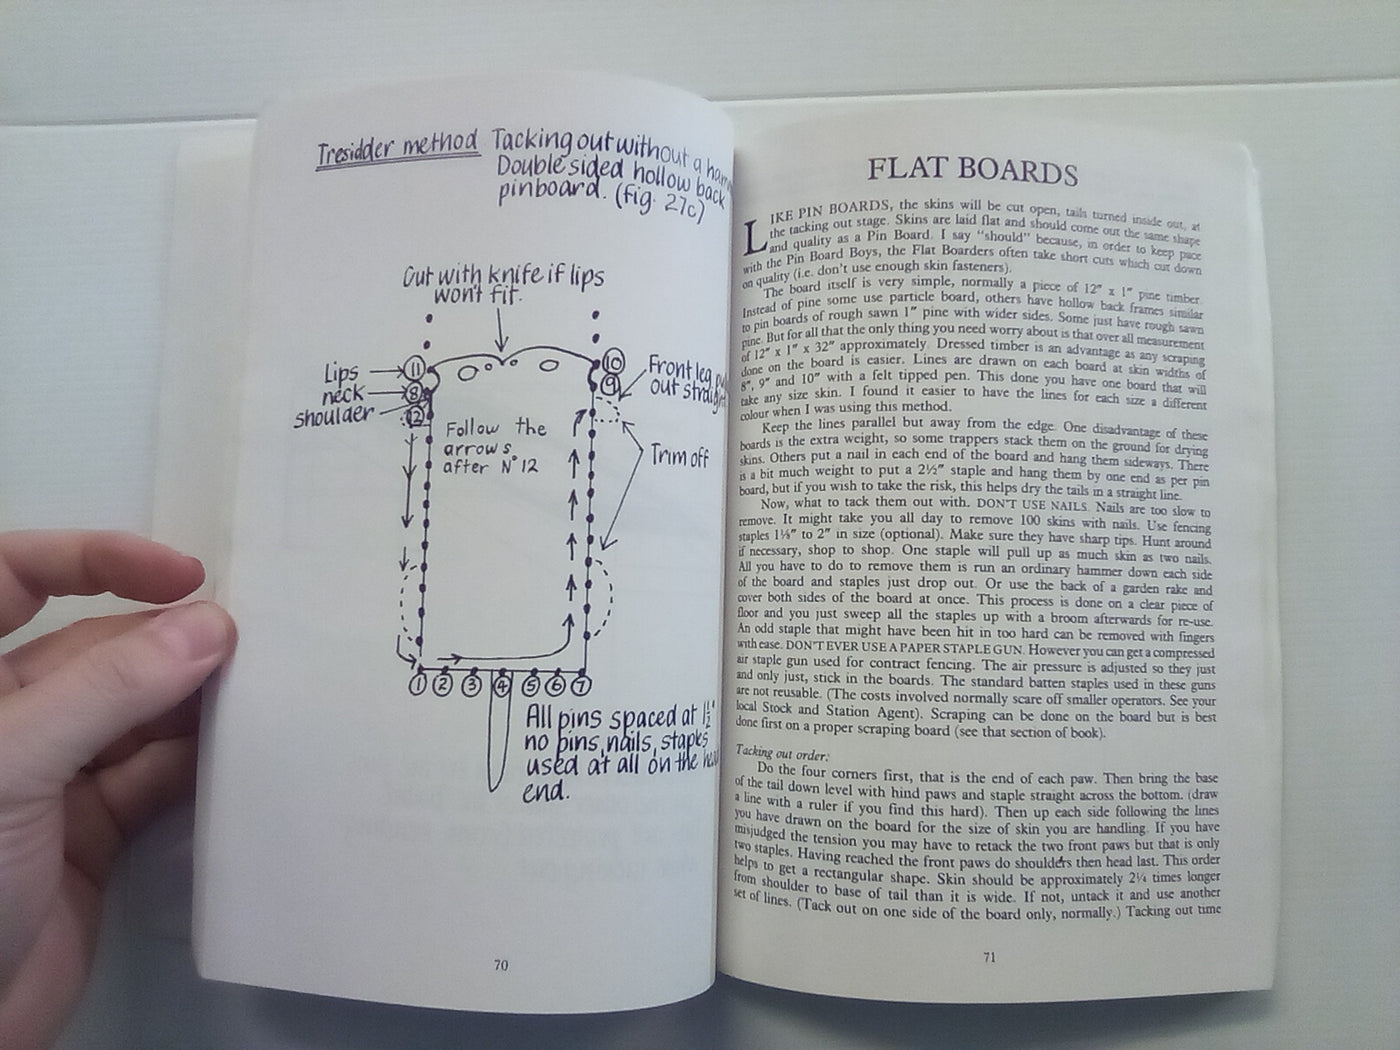 Tresidder method Tacking out without a
Double sided hollow back
pinboard. (fig. 27c)
Cut with knife if lips
won't fit.
Lips
neck
shoulder
11
8
12
10
9
Front leg
out straight
Follow the
arrows
after N° 12
Trim off
1 2 3 4 5 6 7
All pins spaced at 1½"
no pins, nails, staples
used at all on the
end.
70
FLAT BOARDS
LIKE PIN BOARDS, the skins will be cut open, tails turned inside out, at
the tacking out stage. Skins are laid flat and should come out the same shape
and quality as a Pin Board. I say "should" because, in order to keep pace
with the Pin Board Boys, the Flat Boarders often take short cuts which cut down
on quality (i.e. don't use enough skin fasteners).
The board itself is very simple, normally a piece of 12" x 1" pine timber.
Instead of pine some use particle board, others have hollow back frames similar
to pin boards of rough sawn 1" pine with wider sides. Some just have rough sawn
pine. But for all that the only thing you need worry about is that over all measurement
of 12" x 1" x 32" approximately. Dressed timber is an advantage as any scraping
done on the board is easier. Lines are drawn on each board at skin widths of
8", 9" and 10" with a felt tipped pen. This done you have one board that will
take any size skin. I found it easier to have the lines for each size a different
colour when I was using this method.
Keep the lines parallel but away from the edge. One disadvantage of these
boards is the extra weight, so some trappers stack them on the ground for drying
skins. Others put a nail in each end of the board and hang them sideways. There
is a bit much weight to put a 2½" staple and hang them by one end as per pin
board, but if you wish to take the risk, this helps dry the tails in a straight line.
Now, what to tack them out with. DON'T USE NAILS. Nails are too slow to
remove. It might take you all day to remove 100 skins with nails. Use fencing
staples to 2" in size (optional). Make sure they have sharp tips. Hunt around
if necessary, shop to shop. One staple will pull up as much skin as two nails.
All you have to do to remove them is run an ordinary hammer down each side
of the board and staples just drop out. Or use the back of a garden rake and
cover both sides of the board at once. This process is done on a clear piece of
floor and you just sweep all the staples up with a broom afterwards for re-use.
An odd staple that might have been hit in too hard can be removed with fingers
with ease. DON'T EVER USE A PAPER STAPLE GUN. However you can get a compressed
air staple gun used for contract fencing. The air pressure is adjusted so they just
and only just, stick in the boards. The standard batten staples used in these guns
are not reusable. (The costs involved normally scare off smaller operators. See your
local Stock and Station Agent). Scraping can be done on the board but is best
done first on a proper scraping board (see that section of book).
Tacking out order:
Do the four corners first, that is the end of each paw. Then bring the base
of the tail down level with hind paws and staple straight across the bottom. (draw
a line with a ruler if you find this hard). Then up each side following the lines
you have drawn on the board for the size of skin you are handling. If you have
misjudged the tension you may have to retack the two front paws but that is only
two staples. Having reached the front paws do shoulders then head last. This order
helps to get a rectangular shape. Skin should be approximately 2¼ times longer
from shoulder to base of tail than it is wide. If not, untack it and use another
set of lines. (Tack out on one side of the board only, normally.) Tacking out time
71